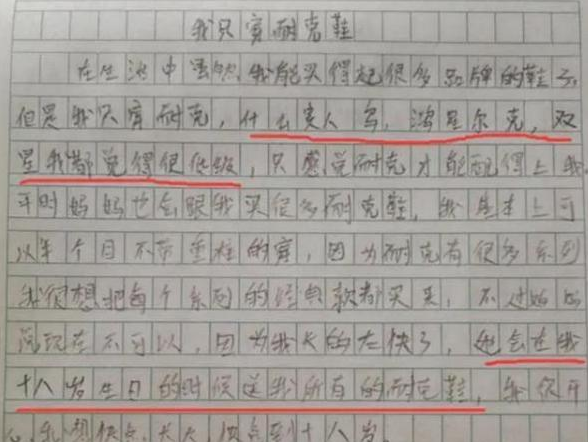 我只穿耐克鞋
在生活中虽然我能买得起很多品牌的鞋子
但是我只穿耐克,什么贵人鸟,鸿星尔克,双
星我都觉得很低级,只感觉耐克才能配得上我。
平时妈妈也会跟我买很多耐克鞋,我基本上可
以半个月不带重样的穿,因为耐克有很多系列
我很想把每个系列的经典款都买来,不过妈妈
说现在不可以,因为我长的太快了,她会在我
十八岁生日的时候送我所有的耐克鞋,我很开
心,我想快点长大,快点到十八岁。